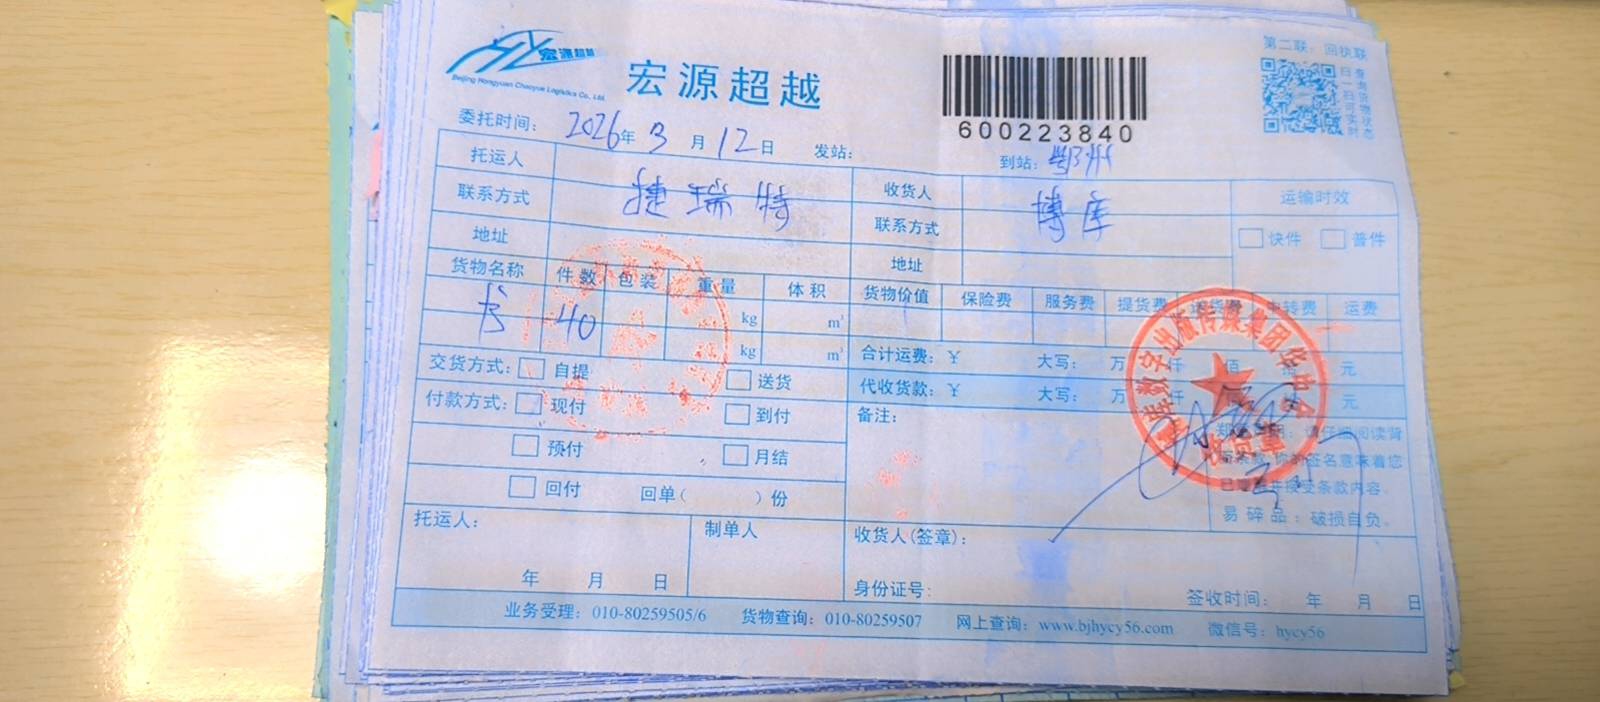 宏源超越
Beijing Hongyuan Chaoyue Logistics Co., Ltd.
宏源超越
600223840
第二联：回执联
委托时间： 2026年 3 月 12 日 发站： 到站：鄂州
托运人 捷瑞特 收货人 博库 运输时效
联系方式 联系方式 快件 普件
地址 地址
货物名称 件数 包装 重量 体积 货物价值 保险费 服务费 提货费 送货费 中转费 运费
书 40 kg m³
kg m³
合计运费：￥ 大写： 万 仟 佰 元
交货方式： 自提 送货
代收货款：￥ 大写： 万 元
付款方式： 现付 到付
备注：
预付 月结
回付 回单（ ）份
易碎品：破损自负。
托运人： 制单人 收货人(签章)：
年 月 日 身份证号： 签收时间： 年 月 日
业务受理：010-80259505/6 货物查询：010-80259507 网上查询：www.bjhycy56.com 微信号：hycy56